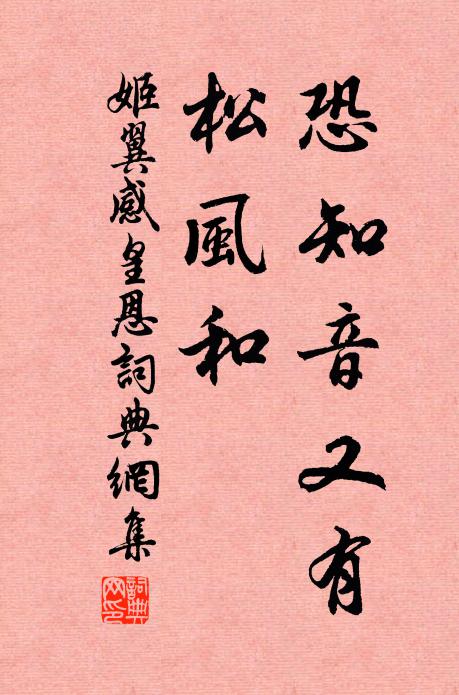 恐知音又有
松風和
姬翼感皇恩詞典網集
詞典网印